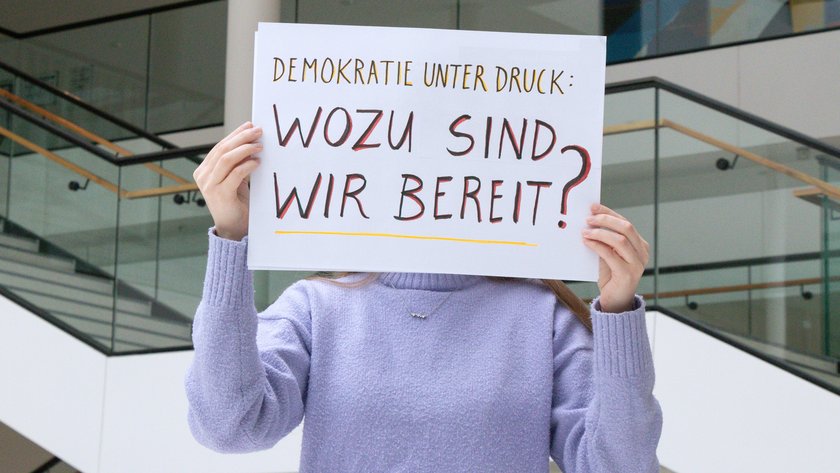 DEMOKRATIE UNTER DRUCK:
WOZU SIND
WIR BEREIT?